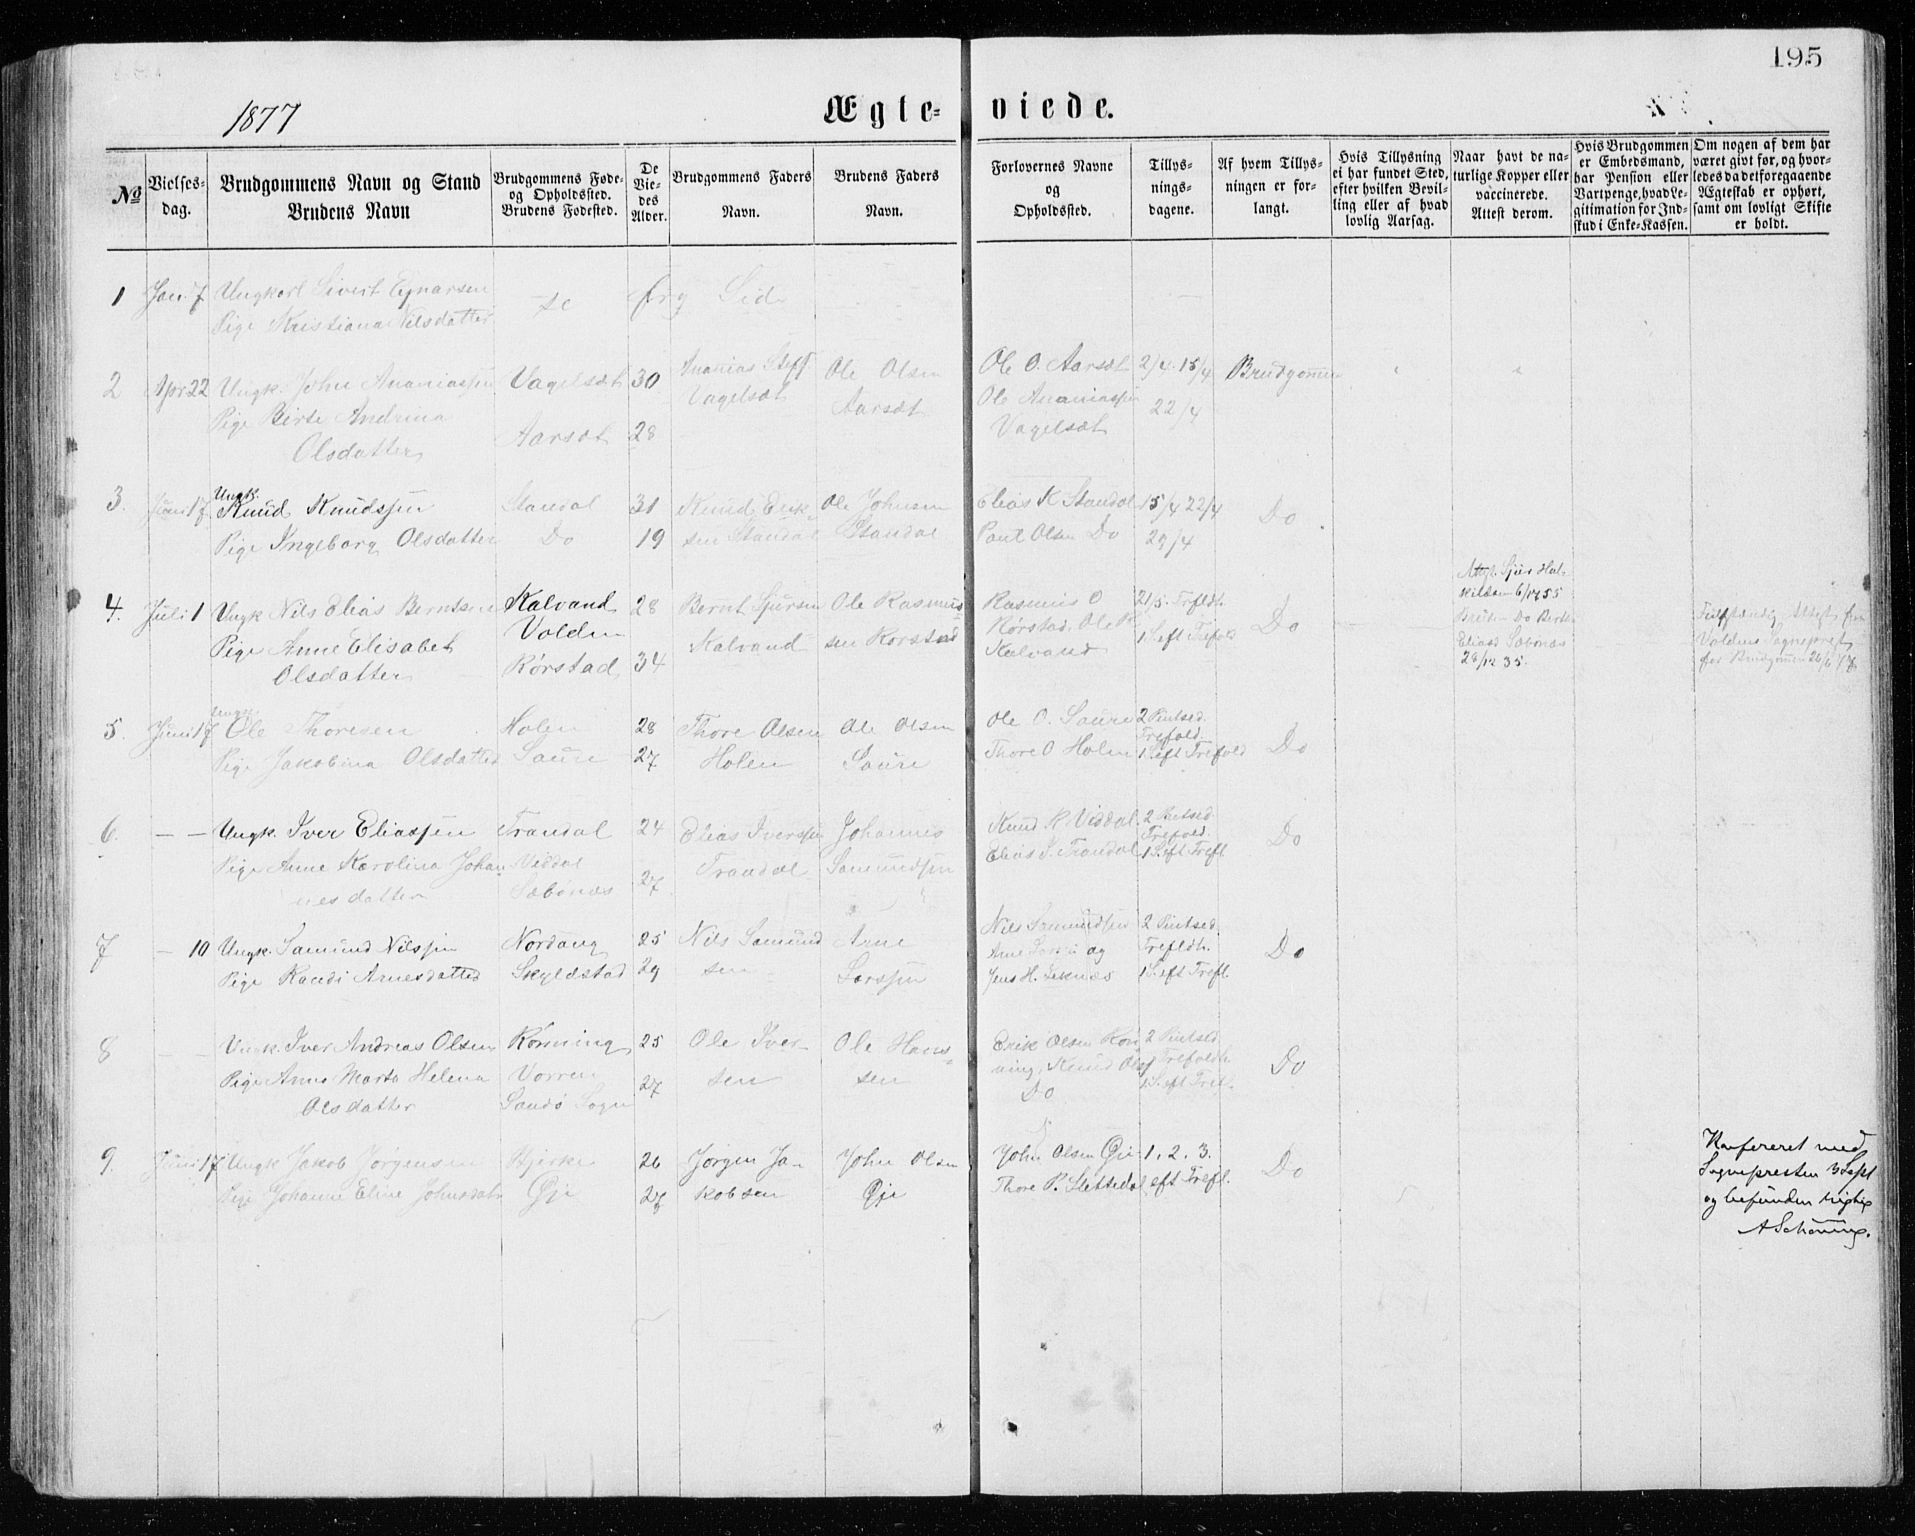 195
1877
Ægte-
viede.
No
Vielses-
dag.
Brudgommens Navn og Stand
Brudens Navn
Brudgommens Føde-
og Opholdssted.
Brudens Fødested.
De
Vie-
des
Alder.
Brudgommens Faders
Navn.
Brudens Faders
Navn.
Forlovernes Navne
og
Opholdssted.
Tillys-
nings-
dagene.
Af hvem Tillys-
ningen er for-
langt.
Hvis Tillysning
ei har fundet Sted,
efter hvilken Bevil-
ling eller af hvad
lovlig Aarsag.
Naar havt de na-
turlige Kopper eller
vaccinerede.
Attest derom.
Hvis Brudgommen
er Embedsmand,
har Pension eller
Vartpenge, hvad Le-
gitimation for Ind-
skud i Enke-Kassen.
Om nogen af dem har
været givt før, og hvor-
ledes da det foregaaende
Ægteskab er ophørt,
samt om lovligt Skifte
er holdt.
1 Jan. 7 Ungkarl Sivert Ejnarsen
Pige Kristiana Nilsdatter
se forg Side
2 Apr 22 Ungk. John Ananiassen Vagelsæt 30 Ananias Steff Ole Olsen Ole O. Aarsæt 2/4 15/4 Brudgommen
Pige Birte Andrina Vagelsæt Aarsæt Ole Ananiassen 22/4
Olsdatter Aarsæt 28 Vagelsæt
3. Juni 17 Ungk.
Knud Knudssen Standal 31 Knud Erik Ole Johnsen Elias K Standal 15/4 22/4 Do
Pige Ingeborg Olsdatter Do 19 sen Standal Standal Poul Olsen Do 29/4
4. Juli 1 Ungk Nils Elias Berntsen Kalvand 28 Bernt Sjursen Ole Rasmus Rasmus O 21/5. Trfldt. Do
Volden
Pige Anne Elisabet Kalvand sen Rørstad Rørstad, Ole R 1 S eft Trefold
Olsdatter Rørstad 34 Kalvand
Sjur Hal
kildsen 6/12 55
Do Berth
Eliasd Sæbønæs
28/12 35.
Attest fra
Voldens Sognepræst
for Brudgommen 26/6
5. Juni 17 Ungk.
Ole Thoresen Holen 28 Thore Olsen Ole Olsen Ole O. Saure 2 Pintsed. Do
Trefold.
Pige Jakobina Olsdatter Saure 27 Holen Saure Thore O Holen 1 S eft Trefold
6. — — Ungk. Iver Eliassen Trandal 24 Elias Iverssen Johannes Knud K. Viddal 2 Pintsed. Do
Trefold.
Pige Anne Karolina Johan Viddal Trandal Samundsen Elias I. Trandal 1 S. eft Trefl.
nesdatter Sæbønæs 27
7 — 10 Ungk. Samund Nilssen Nordang 25 Nils Samund Arne Nils Samundsen 2 Pintsed. Do
Pige Randi Arnesdatter Skyldstad 29 sen Larssen Arne Larsen og Trefldt.
Jens H. Leknæs 1 S. eft Trefl.
8 — — Ungk. Iver Andreas Olsen Rønning 25 Ole Iver Ole Hans- Erik Olsen Røn 2 Pintsed Do
Pige Anne Marta Helena Vorren 27 sen sen ning, Knud Olsen Trefoldh
Olsdatter Sandø Sogn Do 1 S. eft Tref.
9. Juni 17 Ungk Jakob Jørgensen Bjerke 26 Jørgen Ja- John Olsen John Olsen Øie 1. 2. 3. Do
Pige Johanne Eline Johnsdatr Øje 27 kobsen Øje Thore P. Slettedal eft Trefl.
Konfereret med
Sognepresten 3 Sept
og befunden rigtig
A Schøning.